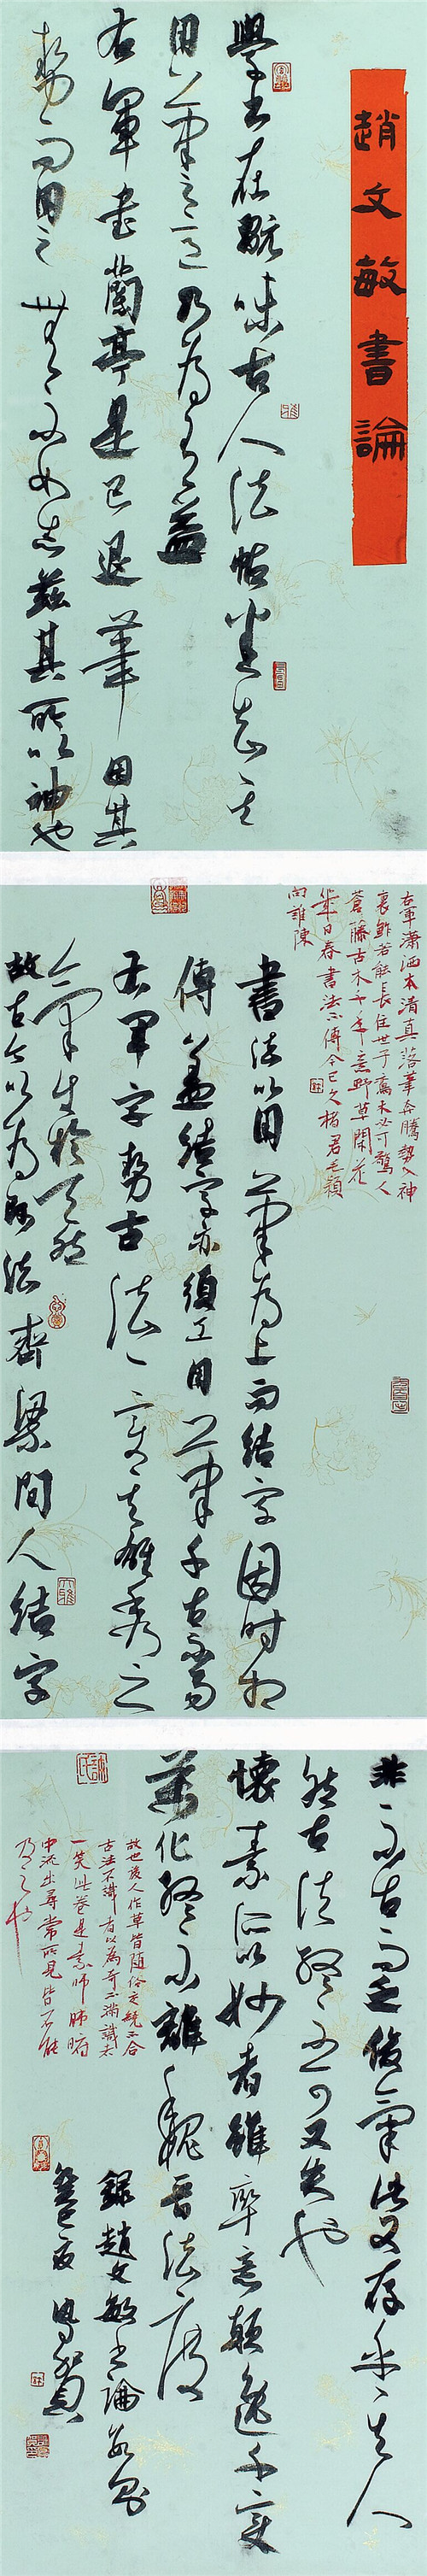 趙文敏書論
學書在玩味古人法帖悉知其
用筆之意乃為有益
右軍書蘭亭是已退筆因其
勢而用之無不如志茲其所以神也
右軍瀟洒本清真落筆奔騰勢入神
裹鮓若能長住世子鸞未必可驚人
蒼藤古木千年意野草閑花
幾日春書法不傳今已久楮君毛穎
向誰陳
書法以用筆為上而結字因時相
傳蓋結字亦須工用筆千古不易
右軍字勢古法一變其雄秀之
氣出於天然
故古今以為師法齊梁間人結字
非不古而乏俊氣此又存乎其人
然古法終不可又失也
懷素所以妙者雖率意顛逸千變
萬化終不離魏晉法度
故也後人作草皆隨俗交繞不合
古法不識者以為奇不滿識者
一笑此卷是素師肺腑
中流出尋常所見皆不能
及之也
錄趙文敏書論數則